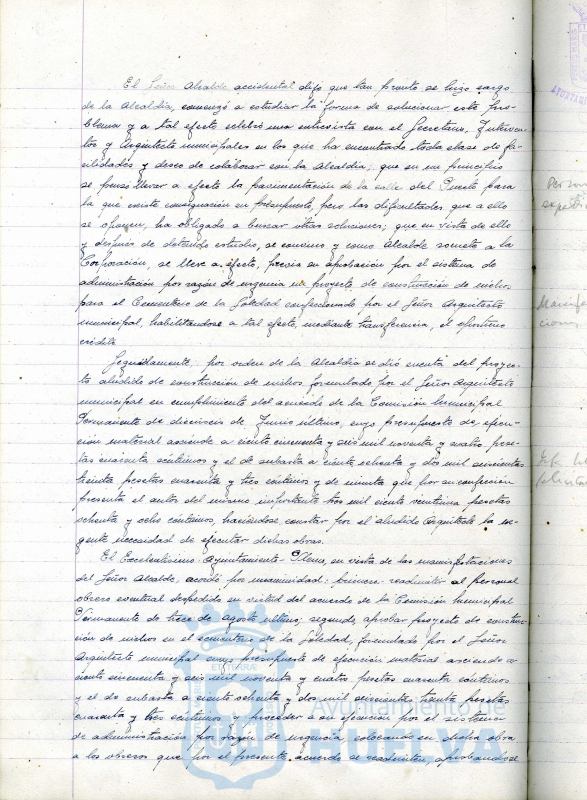 El Señor Alcalde accidental dijo que tan pronto se hizo cargo
de la Alcaldía, comenzó a estudiar la forma de solucionar este pro-
blema y a tal efecto celebró una entrevista con el Secretario, Interven-
tor y Arquitecto municipales en los que ha encontrado toda clase de fa-
cilidades y deseo de colaborar con la Alcaldía; que en un principio
se pensó llevar a efecto la pavimentación de la calle del Puerto para
la que existe consignación en presupuesto, pero las dificultades que a ello
se oponen, ha obligado a buscar otras soluciones; que en vista de ello
y después de detenido estudio, se convino y como Alcalde somete a la
Corporación, se lleve a efecto, previa su aprobación por el sistema de
administración por razón de urgencia un proyecto de construcción de nichos
para el Cementerio de la Soledad confeccionado por el Señor Arquitecto
municipal, habilitándose a tal efecto, mediante transferencia, el oportuno
crédito.
Seguidamente por orden de la Alcaldía se dió cuenta del proyec-
to aludido de construcción de nichos formulado por el Señor Arquitecto
municipal en cumplimiento del acuerdo de la Comisión Municipal
Permanente de dieciseis de Junio último, cuyo presupuesto de ejecu-
ción material asciende a ciento cincuenta y seis mil noventa y cuatro pese-
tas cuarenta céntimos y el de subasta a ciento ochenta y dos mil seiscientas
treinta pesetas cuarenta y tres céntimos y de minuta que por su confección
presenta el autor del mismo importante tres mil ciento veintiuna pesetas
ochenta y ocho céntimos, haciéndose constar por el aludido Arquitecto la ur-
gente necesidad de ejecutar dichas obras.
El Excelentísimo Ayuntamiento Pleno, en vista de las manifestaciones
del Señor Alcalde, acordó por unanimidad: primero readmitir al personal
obrero eventual despedido en virtud del acuerdo de la Comisión Municipal
Permanente de trece de Agosto último; segundo, aprobar proyecto de construc-
ción de nichos en el cementerio de la Soledad, formulado por el Señor
Arquitecto municipal cuyo presupuesto de ejecución material asciende a
ciento cincuenta y seis mil noventa y cuatro pesetas cuarenta céntimos
y el de subasta a ciento ochenta y dos mil seiscientas treinta pesetas
cuarenta y tres céntimos y proceder a su ejecución por el sistema
de administración por razón de urgencia, colocando en dicha obra
a los obreros que por el presente acuerdo se readmiten, aprobándose
Ayuntamiento de
HUELVA